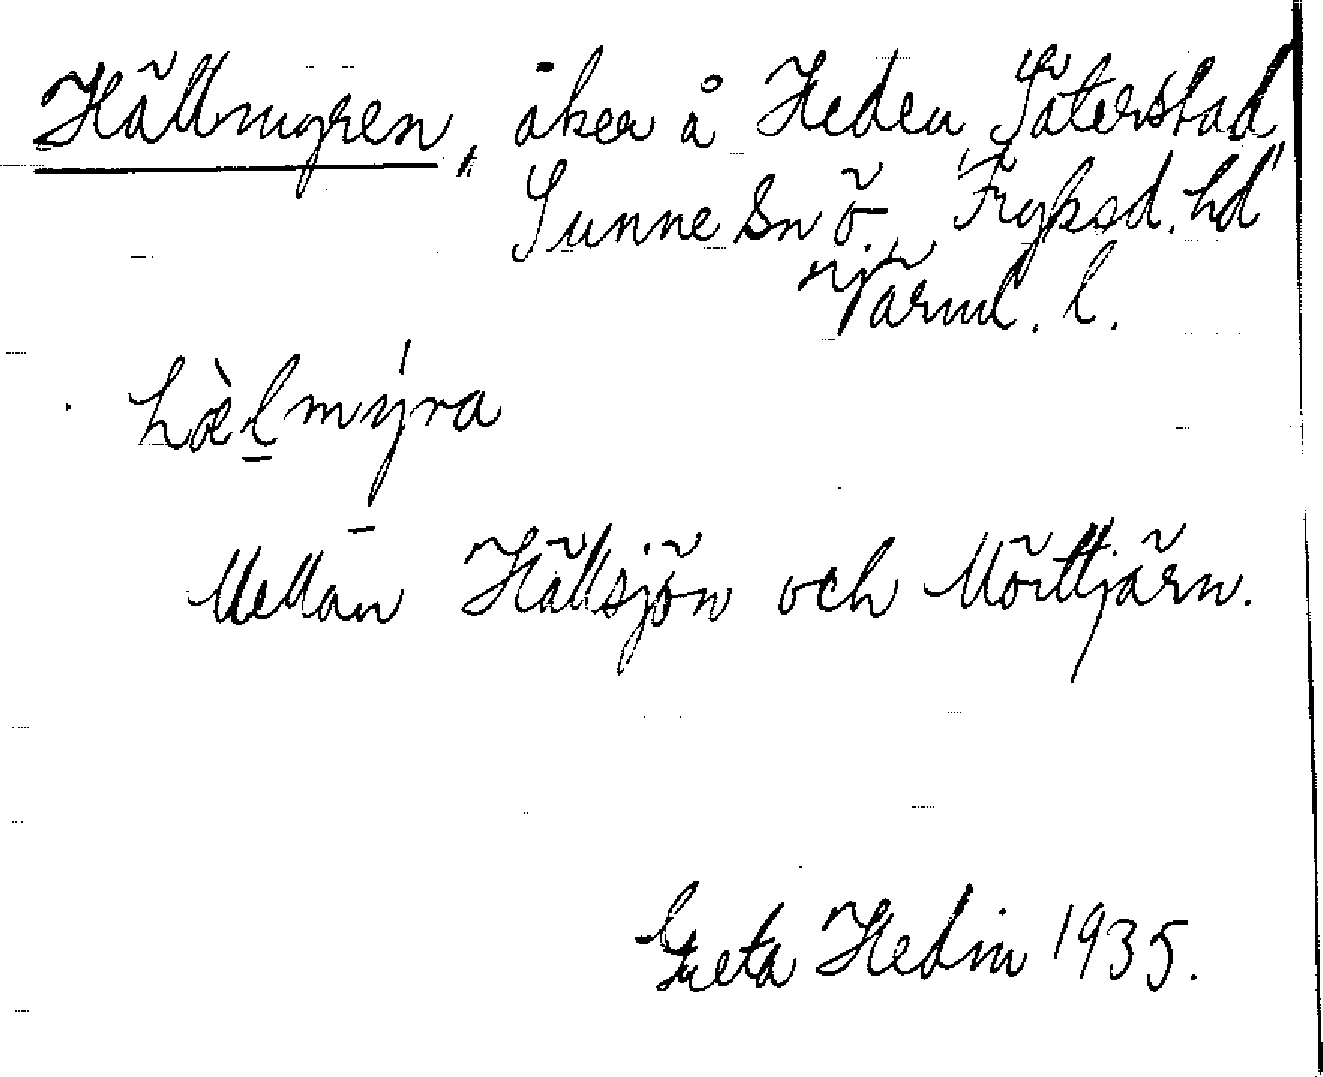 Hällmyren, åker å Heden, Säterstad,
Sunne sn ö. Fryksd. hd
Värml. l.
hæ̀l̠mýra
Mellan Hällsjön och Mörttjärn.
Greta Hedin 1935.